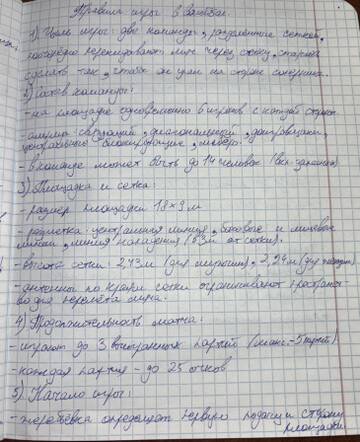 Правила игры в волейбол.
1) Цель игры: две команды, разделенные сеткой,
поочерёдно перекидывают мяч через сетку, стараясь
сделать так, чтобы он упал на стороне соперника.
2) Состав команды:
- на площадке одновременно 6 игроков с каждой стороны
связующий, диагональный, доигровщики,
центральные блокирующие, либеро.
- в команде может быть до 14 человек (вкл. запасных)
3) Площадка и сетка:
- размер площадки 18х9 м
- разметка: центральная линия, боковые и лицевые
линии, линия нападения (в 3м от сетки).
- высота сетки: 2,43м (для мужчин), 2,24м (для женщин)
- антенны по краям сетки ограничивают пространст
во для перелёта мяча.
4) Продолжительность матча:
- играют до 3 выигранных партий (макс - 5 партий)
- каждая партия - до 25 очков
5) Начало игры:
- жеребьёвка определяет первую подачу и сторону
площадки